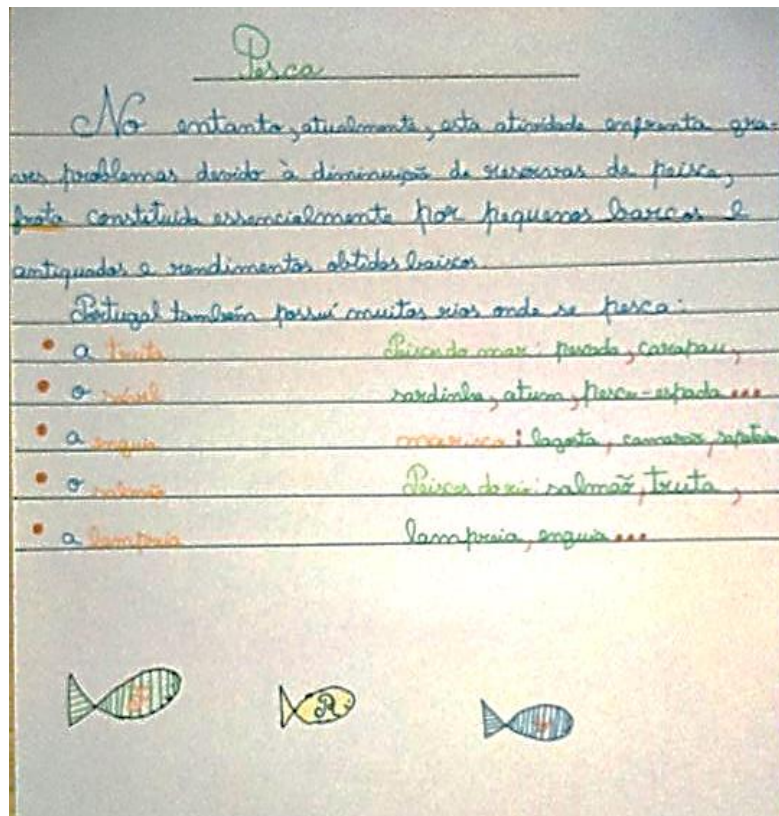 Pesca
No entanto, atualmente, esta atividade enfrenta gra-
ves problemas devido à diminuição de reservas de peixe,
frota constituída essencialmente por pequenos barcos e
antiquados e rendimentos obtidos baixos
Portugal também possuí muitos rios onde se pesca:
• a truta
• o sável
• a enguia
• o salmão
• a lampreia
Peixes do mar: pescada, carapau,
sardinha, atum, peixe-espada...
marisco: lagosta, camarão, sapateira
Peixes do rio: salmão, truta,
lampreia, enguia...